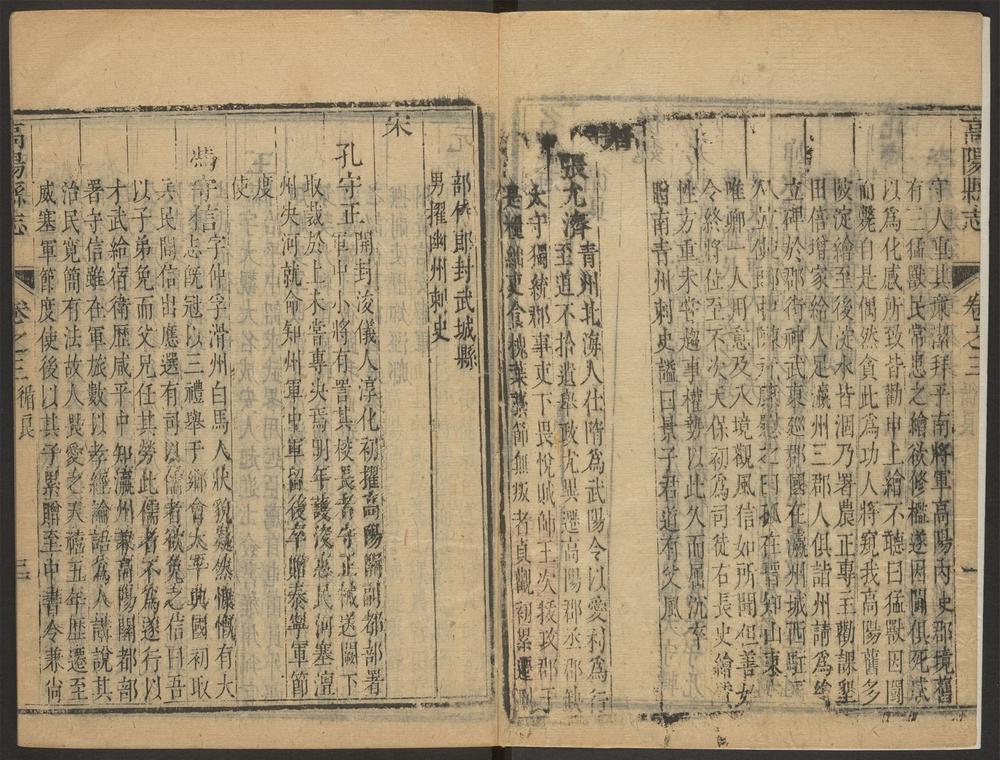 高陽縣志 卷之三
守人重其廉潔拜平南將軍高陽內史郡境舊
有二猛獸民常患之繪欲修檻遂因鬭俱死咸
以為化感所致皆勸申上繪不聽曰猛獸因鬭
而斃自是偶然貪此為功人將窺我高陽舊多
陂淀繪至後淀水皆涸乃署農正專主勸課墾
田倍增家給人足瀛州三郡人俱詣州請為繪
立碑於郡街神武東巡郡國在瀛州城西駐
慰之曰孤在晉知山東
唯卿一人用意及入境觀風信如所聞但善
令終將位至不次天保初為司徒右長史繪
性方重未嘗趨事權勢以此久而屈沉卒
贈南青州刺史諡曰景子君道有父風
張允濟
青州北海人仕隋為武陽令以愛利為行
至道不拾遺舉政尤異遷高陽郡丞郡缺
太守獨統郡事吏下畏悅賊帥王次
攻郡于
是糧絕吏食槐葉藁節無叛者貞觀初累遷
部侍郎封武城縣
男擢幽州刺史
宋
孔守正
開封浚儀人淳化初擢高陽關副都部署
軍中小將有詈其校長者守正械送闕下
取裁於上未嘗專決焉明年護浚惠民河塞澶
州決河就命知州軍中軍留後卒贈泰寧軍節
度
使
馮守信
字仲孚滑州白馬人狀貌嶷然慷慨有大
志既冠以三禮舉于鄉會太平興國初取
兵民間信出應選有司以儒者欲免之信曰吾
以子弟免而父兄任其勞此儒者不為遂行以
才武給宿衛歷咸平中知瀛州兼高陽關都部
署守信雖在軍旅數以孝經論語為人講說其
治民寬簡有法故人愛之天禧五年歷遷至
威塞軍節度使後以其子累贈至中書令兼尚
高陽縣志 卷之三 循良 三